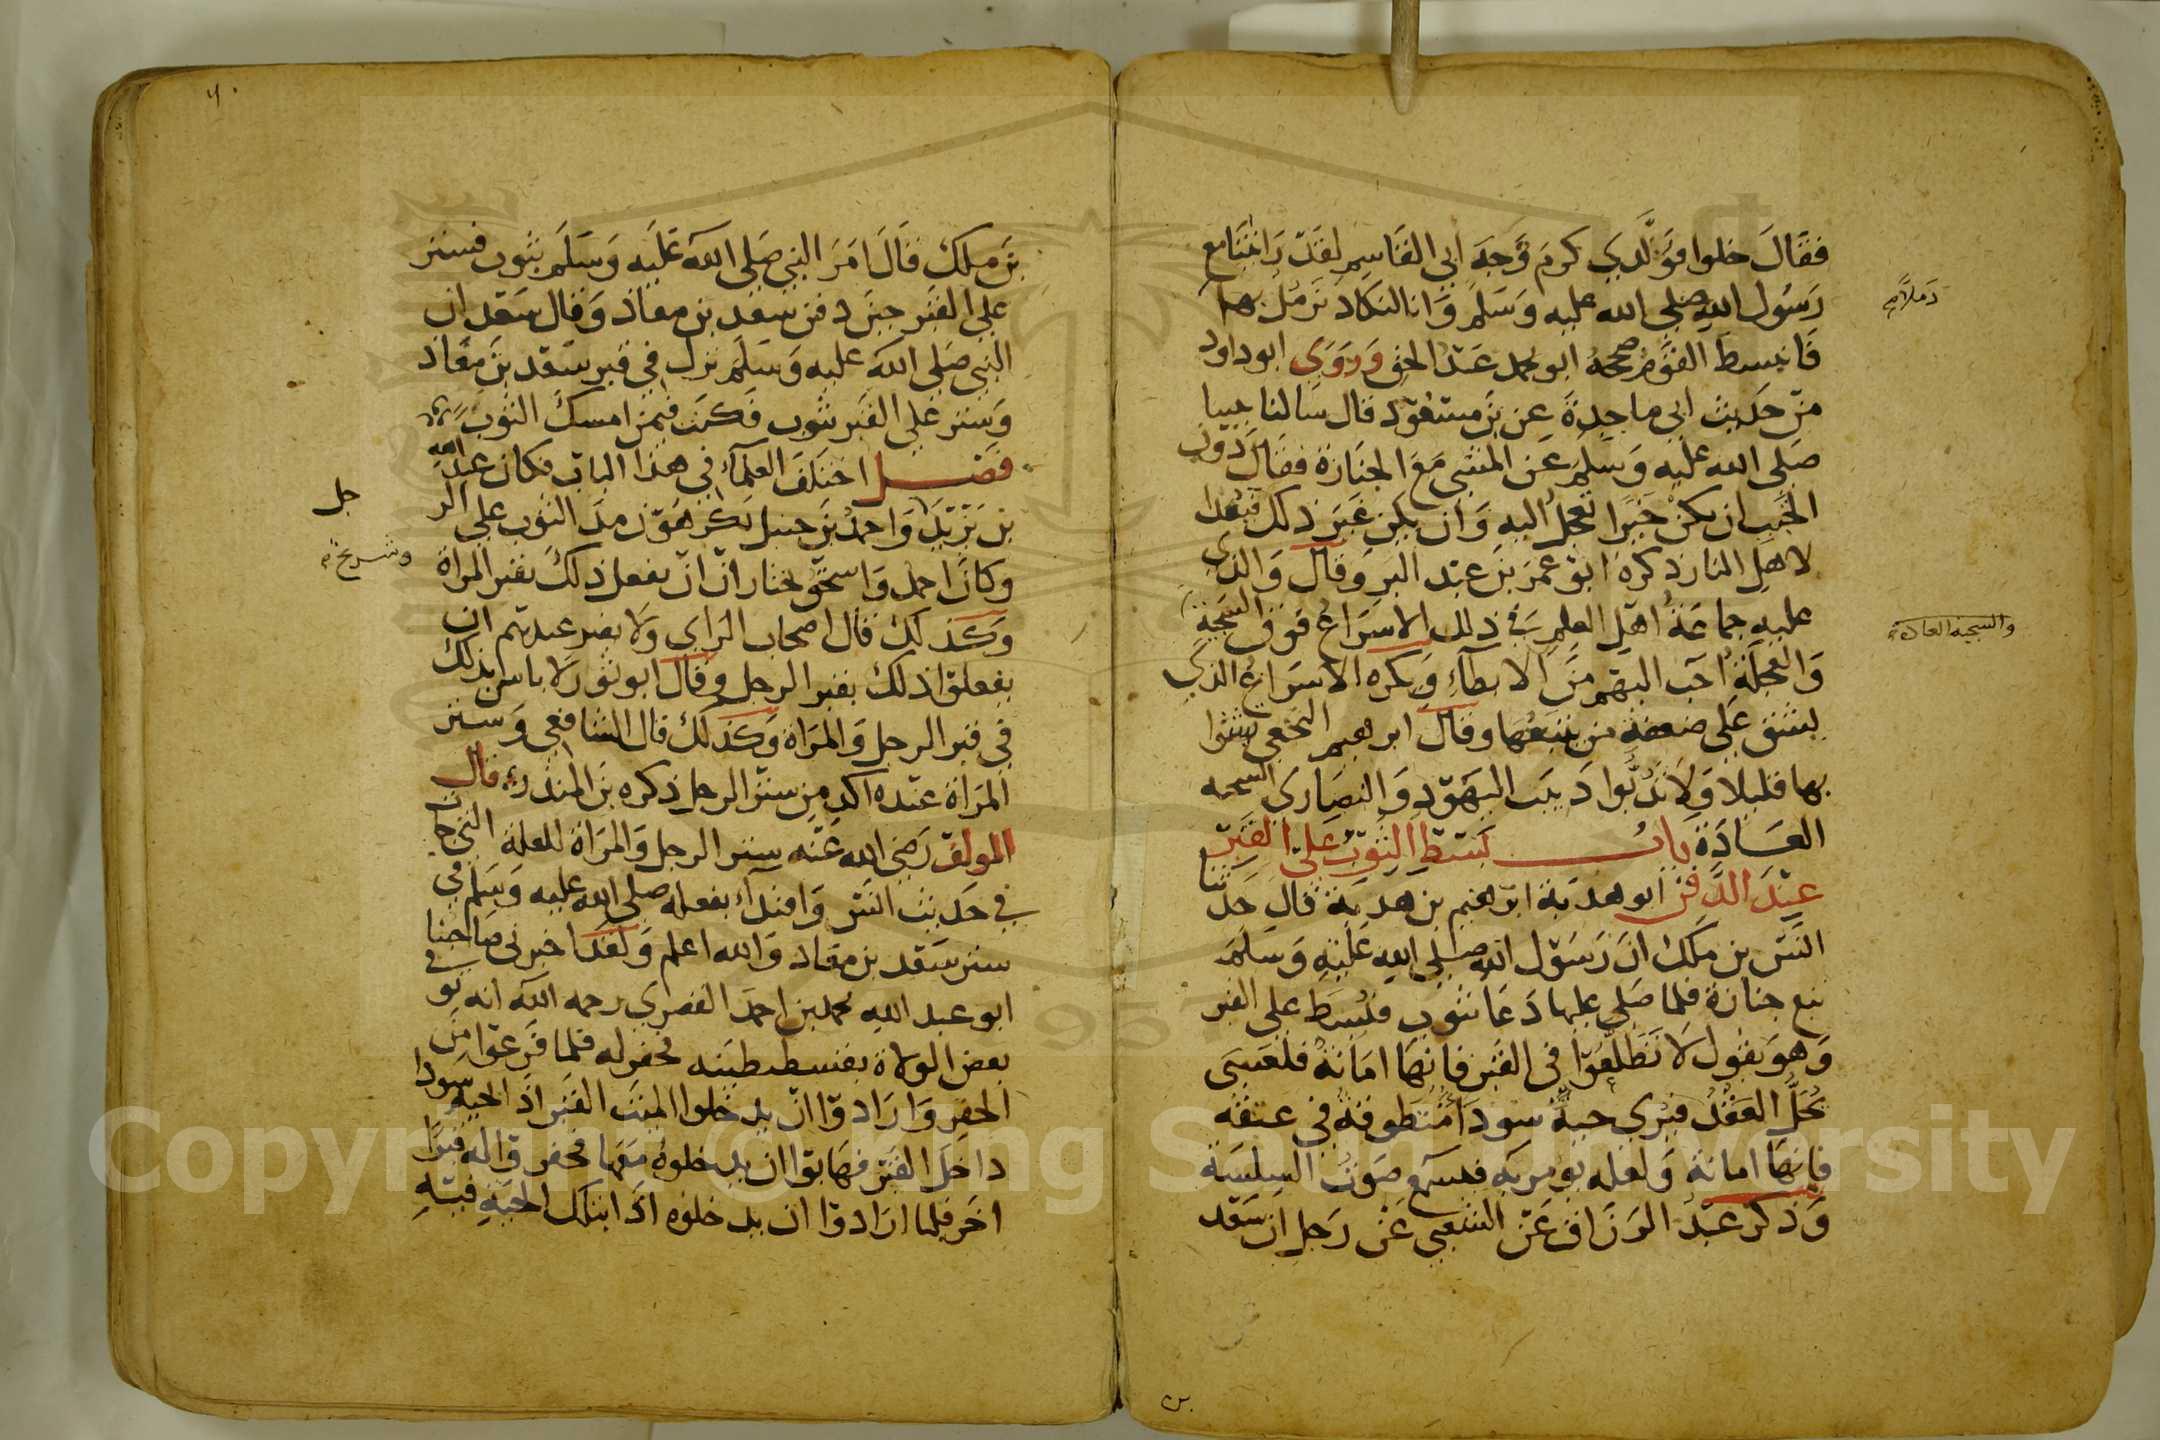 فقال خلوا فوالذي كرم وجه ابي القاسم لقد راتنا مع
رسول الله صلى الله عليه وسلم وانا لنكاد نرمل بها
رملا
فانبسط القوم صححه ابو محمد عبد الحق وروى ابو داود
من حديث ابي ماجدة عن بن مسعود قال سالنا نبينا
صلى الله عليه وسلم عن المشي مع الجنازة فقال دون
الخبب ان يكن خيرا تعجل اليه وان يكن غير ذلك فبعدا
لاهل النار ذكره ابو عمر بن عبد البر وقال والذي
عليه جماعة اهل العلم في ذلك الاسراع فوق السجية
والسجية العادة
والعجلة احب اليهم من الابطاء ويكره الاسراع الذي
يشق على ضعفة من يتبعها وقال ابرهيم النخعي بشوا
بها قليلا ولا تدبوا دبيب اليهود والنصارى السجيه
العادة باب بسط الثوب على القبر
عند الدفن ابو هدبة ابرهيم بن هدبة قال حدثنا
انس بن ملك ان رسول الله صلى الله عليه وسلم
تبع جنازة فلما صلى عليها دعا بثوب فبسط على القبر
وهو يقول لا تطلعوا في القبر فانها امانة فلعسى
يحل العقد فيرى حية سودا متطوقة في عنقه
فانها امانة ولعله يومر به فيسمع صوت السلسلة
وذكر عبد الرزاق عن الشعبي عن رجل ان سعد
بن
بن ملك قال امر النبي صلى الله عليه وسلم بثوب فستر
على القبر حين دفن سعد بن معاذ وقال سعد ان
النبي صلى الله عليه وسلم نزل في قبر سعد بن معاذ
وستر على القبر بثوب فكنت فيمن امسك الثوب
فصل اختلف العلماء في هذا الباب فكان عبد الله
بن يزيد واحمد بن حنبل يكرهون مد الثوب على الر
جل
وشريح
وكان احمد واسحق يختاران ان يفعل ذلك بقبر المراة
وكذلك قال اصحاب الراي ولا يضير عندهم ان
يفعلوا ذلك بقبر الرجل وقال ابو ثور لا باس بذلك
في قبر الرجل والمراة وكذلك قال الشافعي وستر
المراة عنده اكد من ستر الرجل ذكره بن المنذر قال
المولف رضي الله عنه ستر الرجل والمراة للعلة التي جات
في حديث انس واقتداء بفعله صلى الله عليه وسلم في
ستر سعد بن معاد والله اعلم ولقد اخبرني صاحبنا
ابو عبد الله محمد بن احمد القصري رحمه الله انه توفي
بعض الولاة بقسطنطينه فحفر له فلما فرغوا من
الحفر وارادوا ان يدخلوا الميت القبر اذا الحية سودا
داخل القبر فهابوا ان يدخلوه معها فحفروا له قبرا
اخر فلما ارادوا ان يدخلوه اذا بتلك الحية فيه